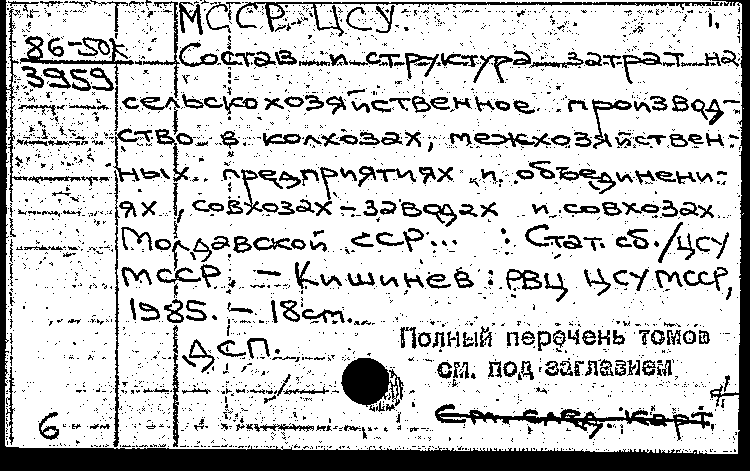 МССР. ЦСУ. 1.
86-50к
3959
Состав и структура затрат на
сельскохозяйственное производ-
ство в колхозах, межхозяйствен-
ных предприятиях и объединени-
ях, совхозах-заводах и совхозах
Молдавской ССР... : Стат. сб./ЦСУ
МССР. - Кишинев : РВЦ ЦСУ МССР,
1985. - 18см.
ДСП.
Полный перечень томов
см. под заглавием
См. след. карт.
6